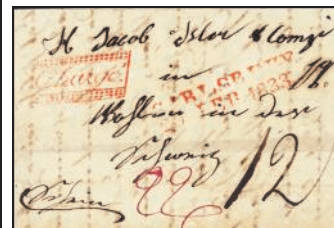 H Jacob Isler & Comp
Chargé
in
CARLSRUHE
FEB. 1833
Wohlen in der
Schweiz
12
Schein